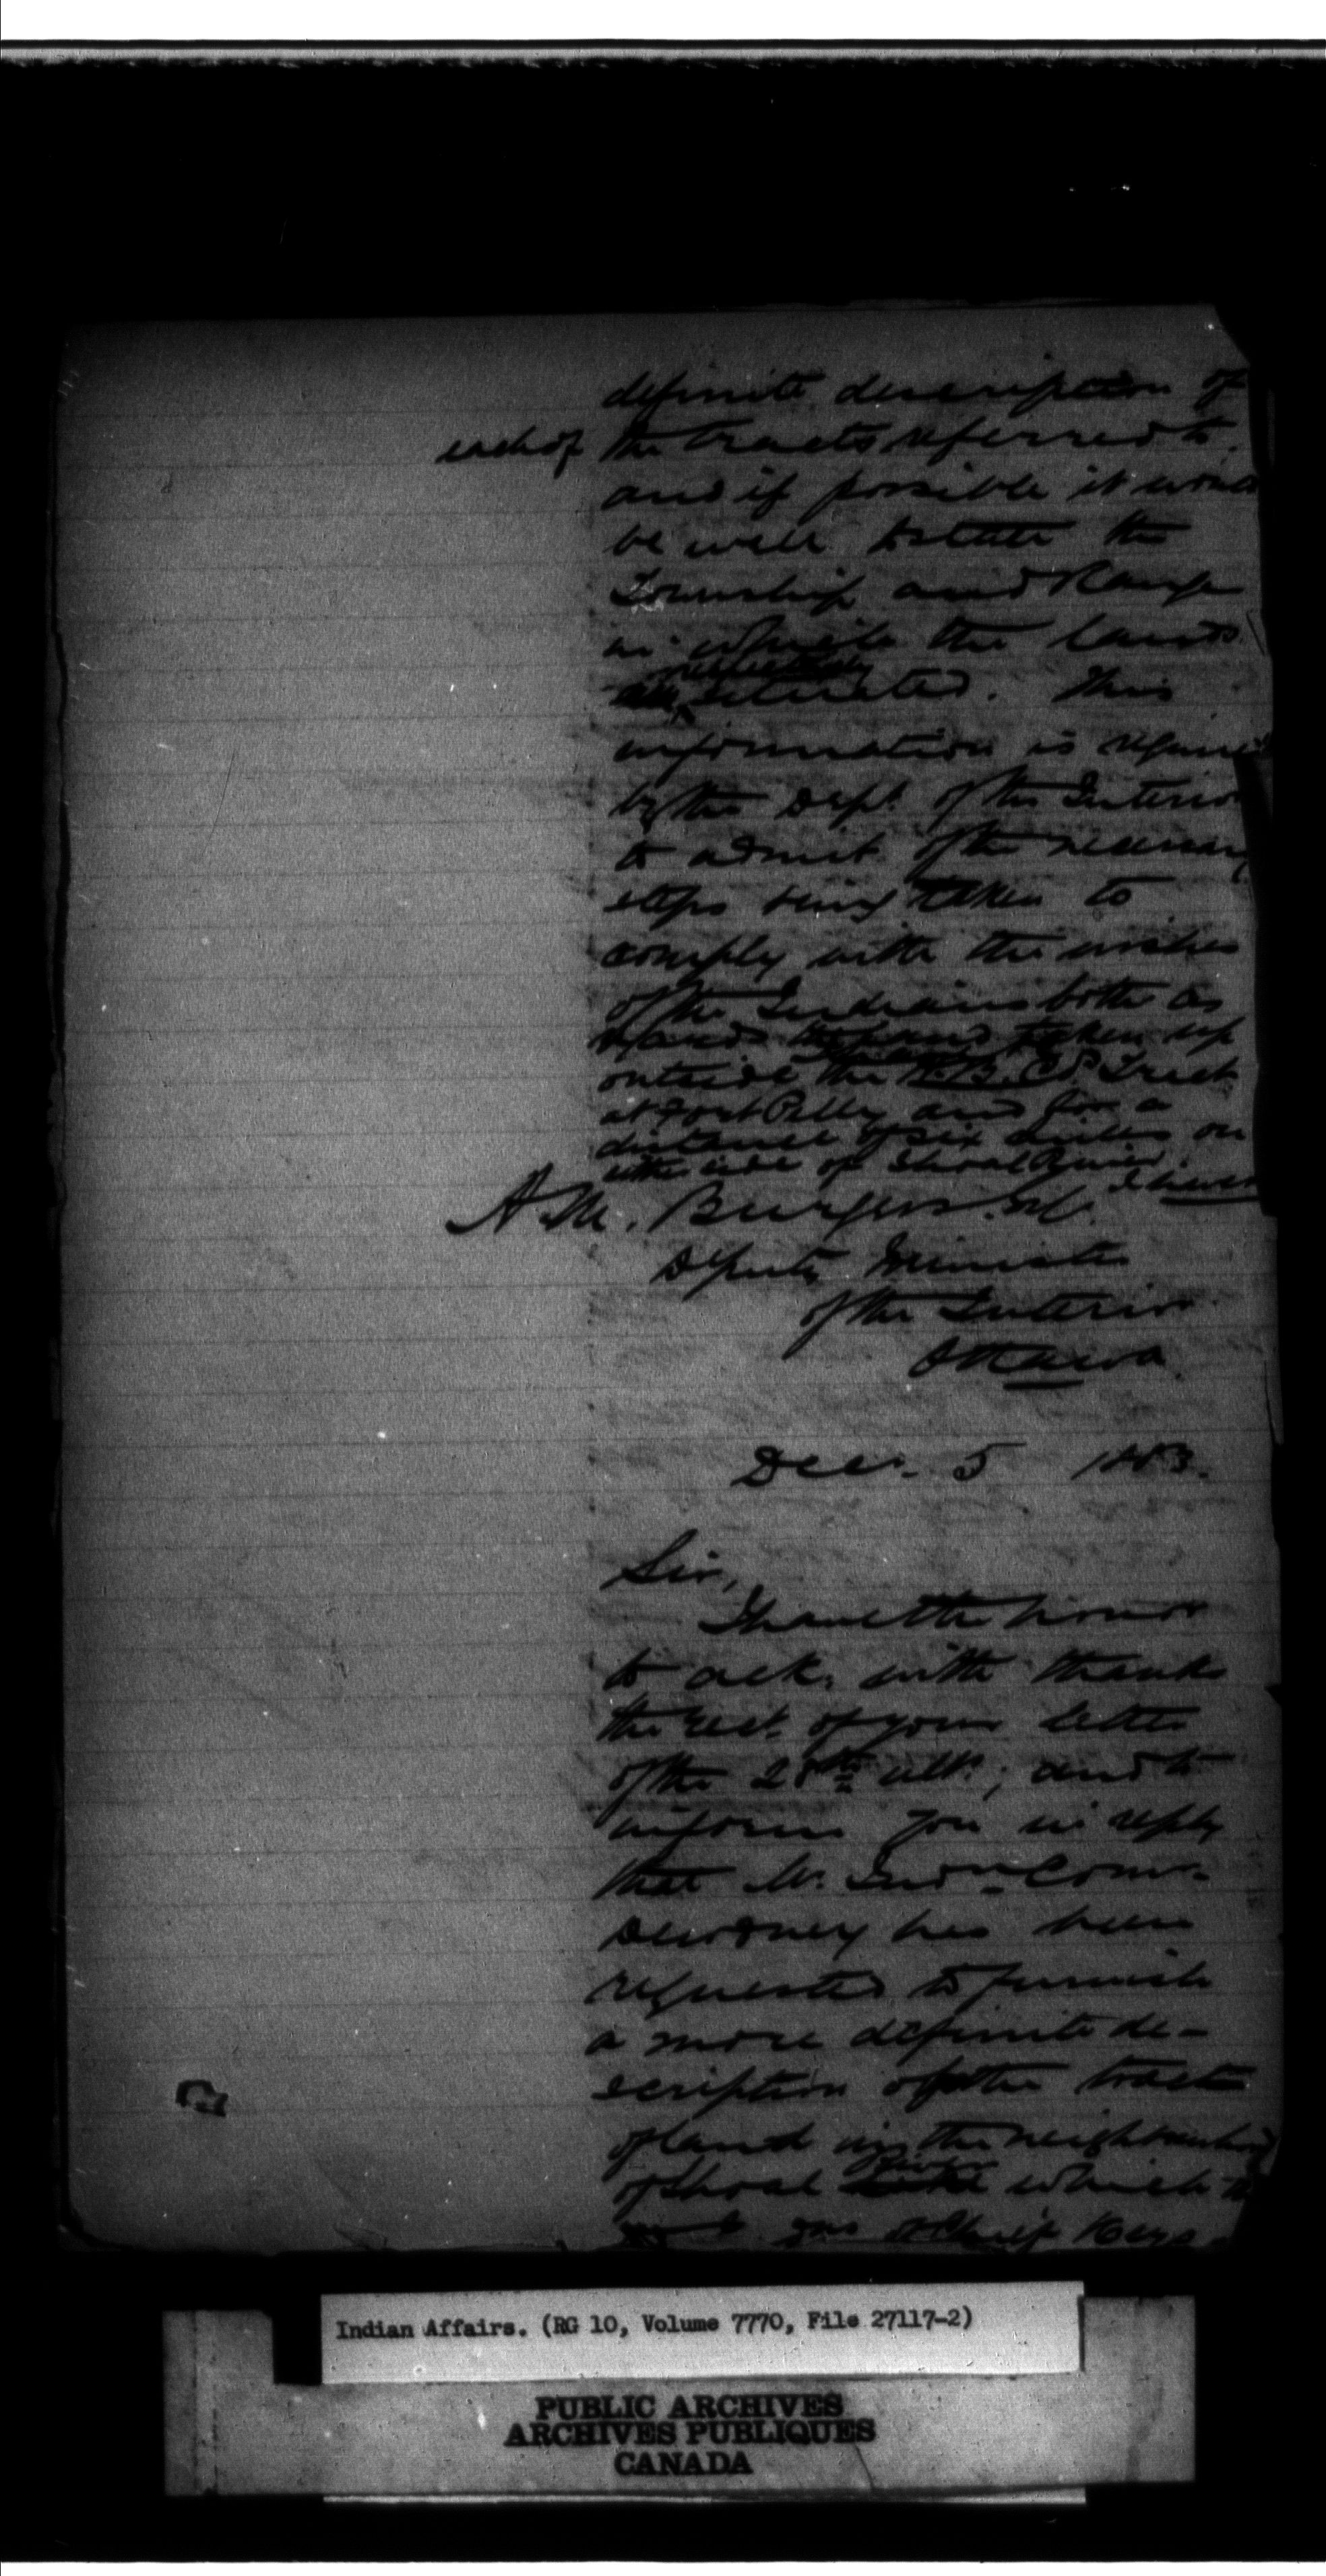 definite description of
each of the tracts referred to.
and if possible it would
be well to state the
Township and Range
in which the lands
respectively
are situated. This
information is required
by the Dept. of the Interior
to admit of the necessary
steps being taken to
comply with the wishes
of the Indians both as
regards the land taken up
outside the H.B.Co's Tract
at Fort Pelly and for a
distance of six miles on
either side of Shoal River
I have
A.M. Burgess. Esq.
Deputy Minister
of the Interior
Ottawa
Decr. 5 1883.
Sir,
I have the honor
to ack. with thanks
the rect. of your letter
of the 28th ulto; and to
inform you in reply
that Mr. Indn. Comr.
Dewdney has been
requested to furnish
a more definite de-
scription of the tract
of land in the neighbourhood
River
of Shoal which
Chief Keys
Indian Affairs. (RG 10, Volume 7770, File 27117-2)
PUBLIC ARCHIVES
ARCHIVES PUBLIQUES
CANADA